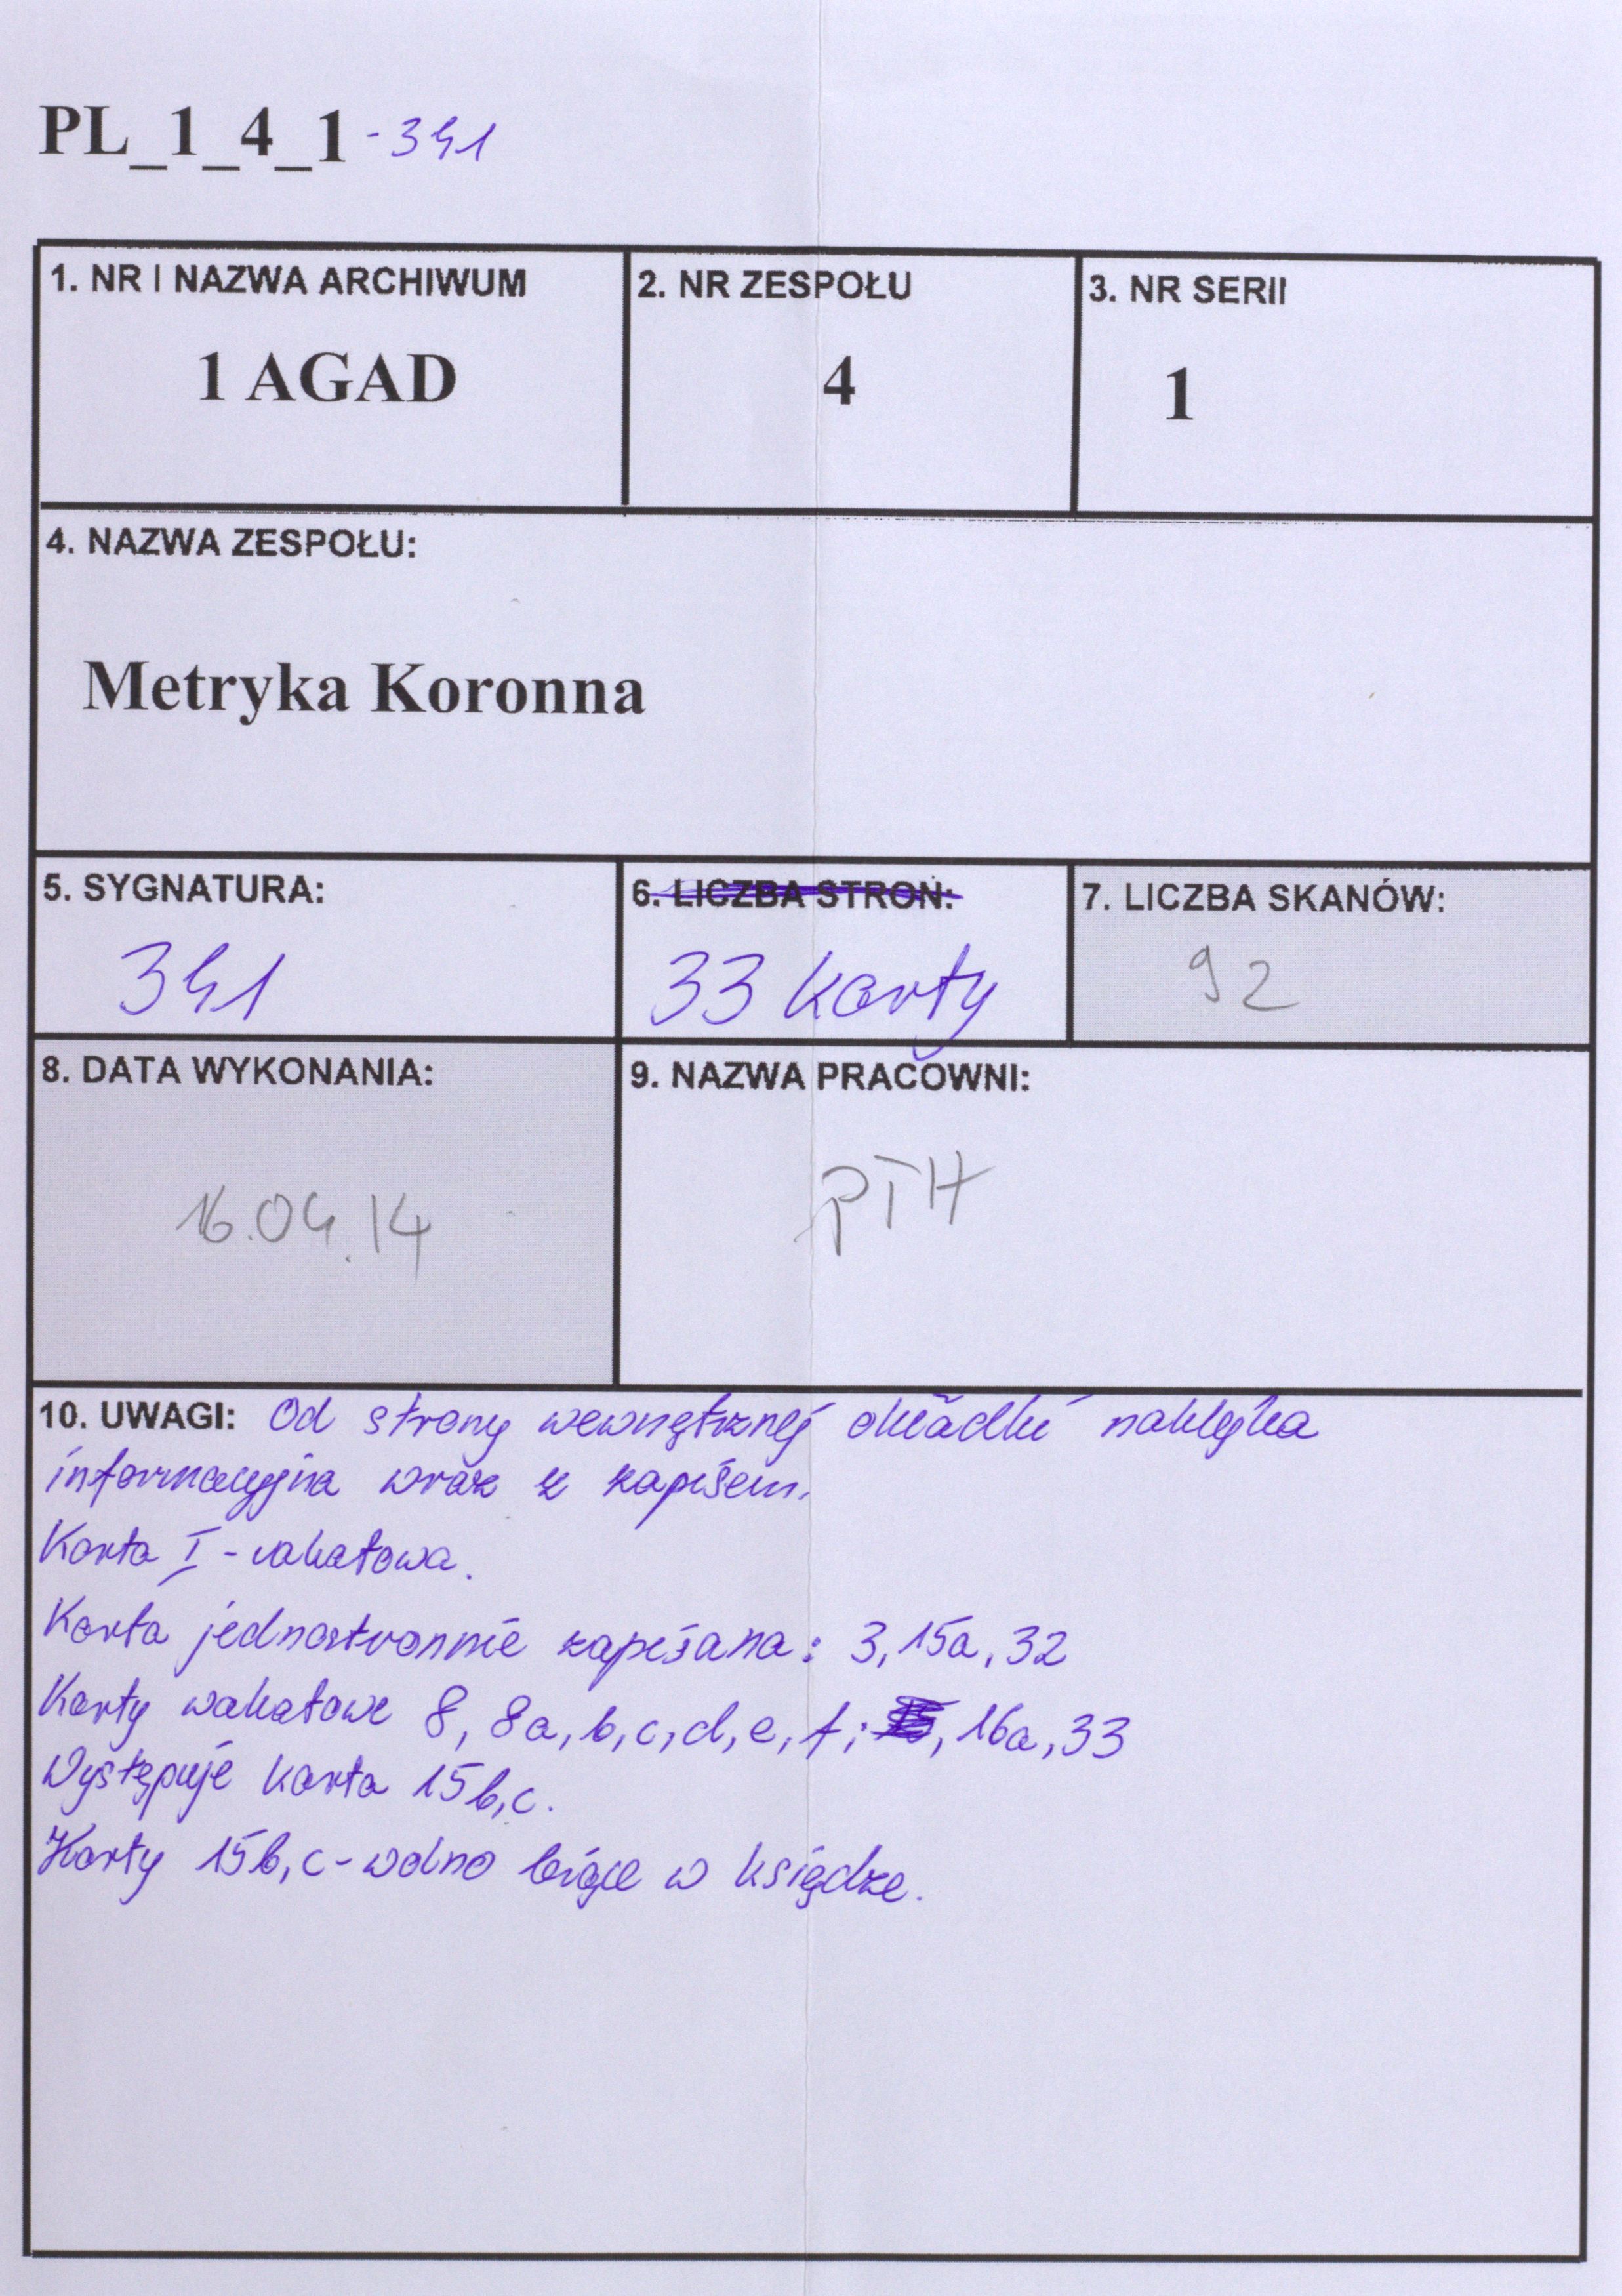 PL_1_4_1 - 341
1. NR I NAZWA ARCHIWUM
1 AGAD
2. NR ZESPOŁU
4
3. NR SERII
1
4. NAZWA ZESPOŁU:
Metryka Koronna
5. SYGNATURA:
341
6. LICZBA STRON:
33 karty
7. LICZBA SKANÓW:
92
8. DATA WYKONANIA:
16.04.14
9. NAZWA PRACOWNI:
PTH
10. UWAGI: Od strony wewnętrznej okładki naklejka
informacyjna wraz z zapisem.
Karta I - wakatowa.
Karta jednostronnie zapisana: 3, 15a, 32
Karty wakatowe 8, 8a, b, c, d, e, f; , 16a, 33
Występuje karta 15b, c.
Karty 15b, c - wolno leżące w księdze.